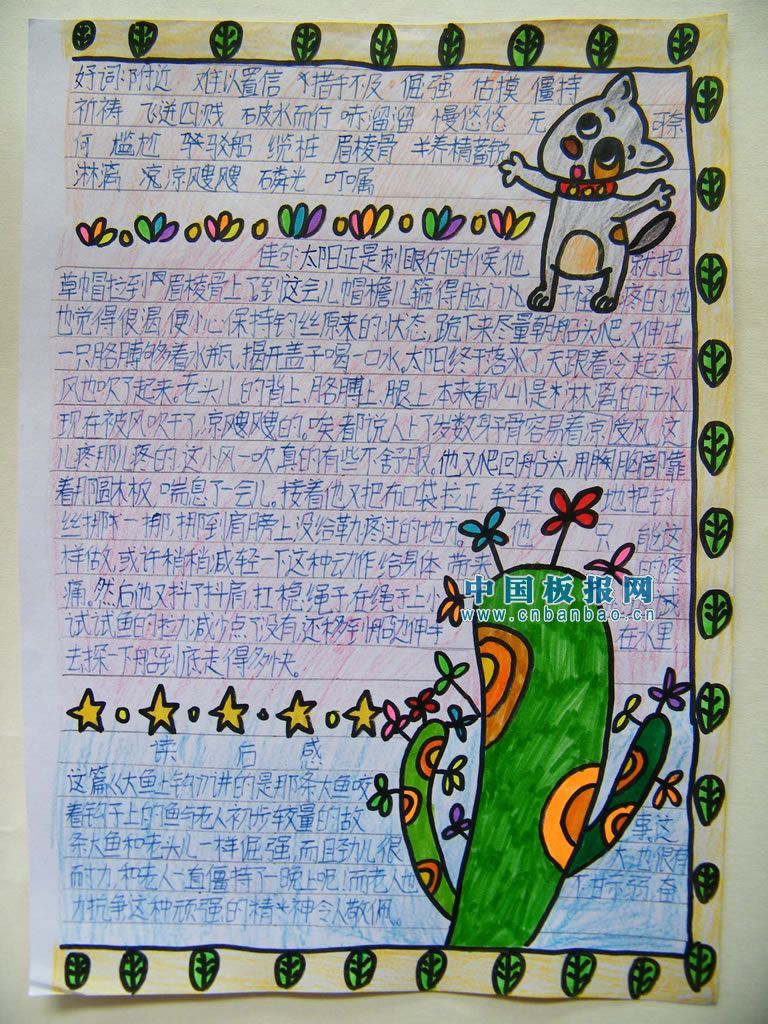 好词:附近 难以置信 措手不及 倔强 估摸 僵持
祈祷 飞迸四溅 破水而行 哧溜溜 慢悠悠 无 可奈
何 尴尬 驳船 缆桩 眉棱骨 养精蓄锐
淋漓 凉飕飕 磷光 叮嘱
佳句:太阳正是刺眼的时候,他 就把
草帽拉到眉棱骨上了,到这会儿帽檐儿箍得脑门儿 疼的,他
也觉得很渴,便小心保持钓丝原来的状态,跪下来尽量朝船头爬,又伸出
一只胳膊够着水瓶,揭开盖子喝一口水。太阳终于落了,天跟着冷起来,
风也吹了起来。老头儿的背上,胳膊上,腿上,本来都是淋漓的汗水,
现在被风吹干了,凉飕飕的。唉,都说人上了岁数,身子骨容易着凉受风,这
儿疼那儿疼的,这小风一吹,真的有些不舒服。他又爬回船头,用胸部靠
着那圆木板,喘息了一会儿。接着他又把布口袋拉正,轻轻 地把钓
丝挪一挪,挪到肩膀上没给勒疼过的地方。 他 只 能这
样做,或许稍稍减轻一下这种动作给身体 带来 的疼
痛。然后他又抖了抖肩,扛稳绳子,在绳子上小
试试鱼的拉力减少点了没有,还移到船边伸手 在水里,
去探一下船到底走得多快。
读 后 感
这篇《大鱼上钩》讲的是那条大鱼咬
着钩子上的鱼与老人初步较量的故 事。这
条大鱼和老头儿一样倔强,而且劲儿很 大,也很有
耐力,和老人一直僵持了一晚上呢!而老人也 不甘示弱,奋
力抗争,这种顽强的精神令人敬佩。
中国板报网
www.cnbanbao.cn